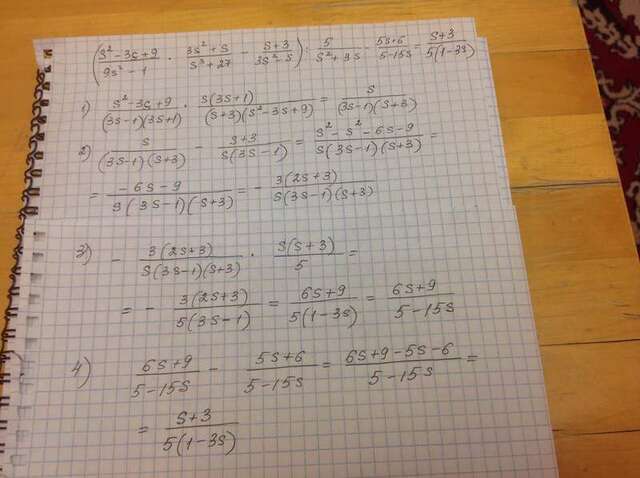 (s² - 3s + 9 / 9s² - 1 · 3s² + s / s³ + 27 - s + 3 / 3s² - s) : 5 / s² + 3s - 5s + 6 / 5 - 15s = s + 3 / 5(1 - 3s)
1) s² - 3s + 9 / (3s - 1)(3s + 1) · s(3s + 1) / (s + 3)(s² - 3s + 9) = s / (3s - 1)(s + 3)
2) s / (3s - 1)(s + 3) - s + 3 / s(3s - 1) = s² - s² - 6s - 9 / s(3s - 1)(s + 3) =
= - 6s - 9 / s(3s - 1)(s + 3) = - 3(2s + 3) / s(3s - 1)(s + 3)
3) - 3(2s + 3) / s(3s - 1)(s + 3) · s(s + 3) / 5 =
= - 3(2s + 3) / 5(3s - 1) = 6s + 9 / 5(1 - 3s) = 6s + 9 / 5 - 15s
4) 6s + 9 / 5 - 15s - 5s + 6 / 5 - 15s = 6s + 9 - 5s - 6 / 5 - 15s =
= s + 3 / 5(1 - 3s)